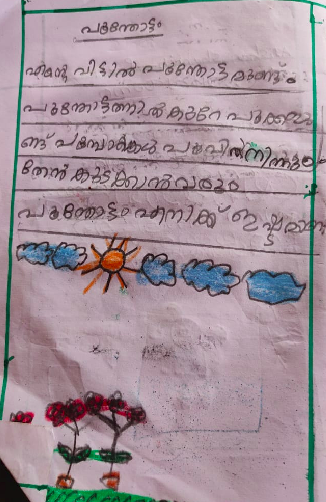 പൂന്തോട്ടം
എന്റെ വീട്ടിൽ പൂന്തോട്ടമുണ്ട്.
പൂന്തോട്ടത്തിൽ കുറേ പൂക്കളു
ണ്ട് പൂമ്പാറ്റകൾ പൂവിൽ നിന്നും
തേൻ കുടിക്കാൻ വരും
പൂന്തോട്ടം എനിക്ക് ഇഷ്ടമാണ്